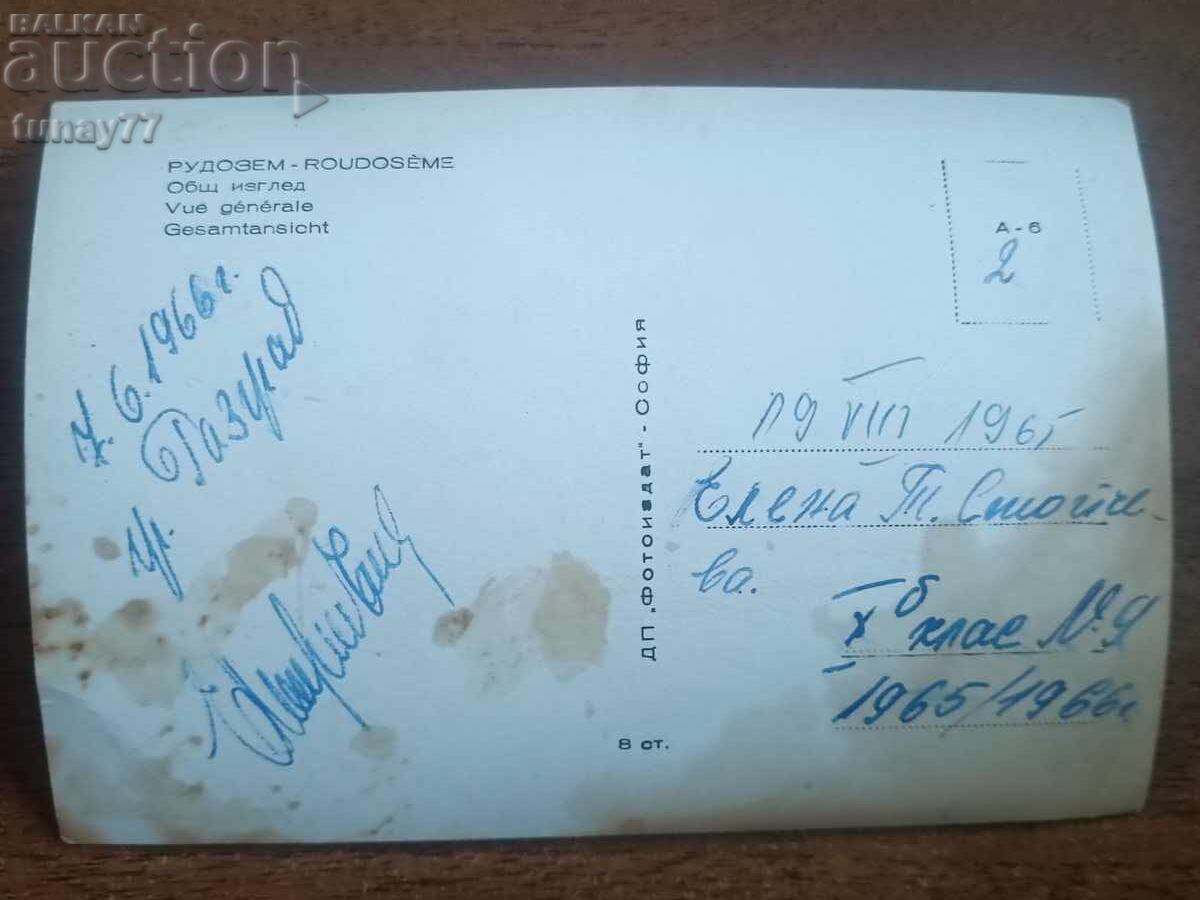 BALKAN
auction
tunay77
РУДОЗЕМ - ROUDOSÈME
Общ изглед
Vue générale
Gesamtansicht
А - 6
2
7. 6. 1966 г.
гр. Разград
ДП „Фотоиздат" - София
8 ст.
19 VIII 1965
Елена Т. Стойче-
ва.
X б клас № 9
1965/1966 г.